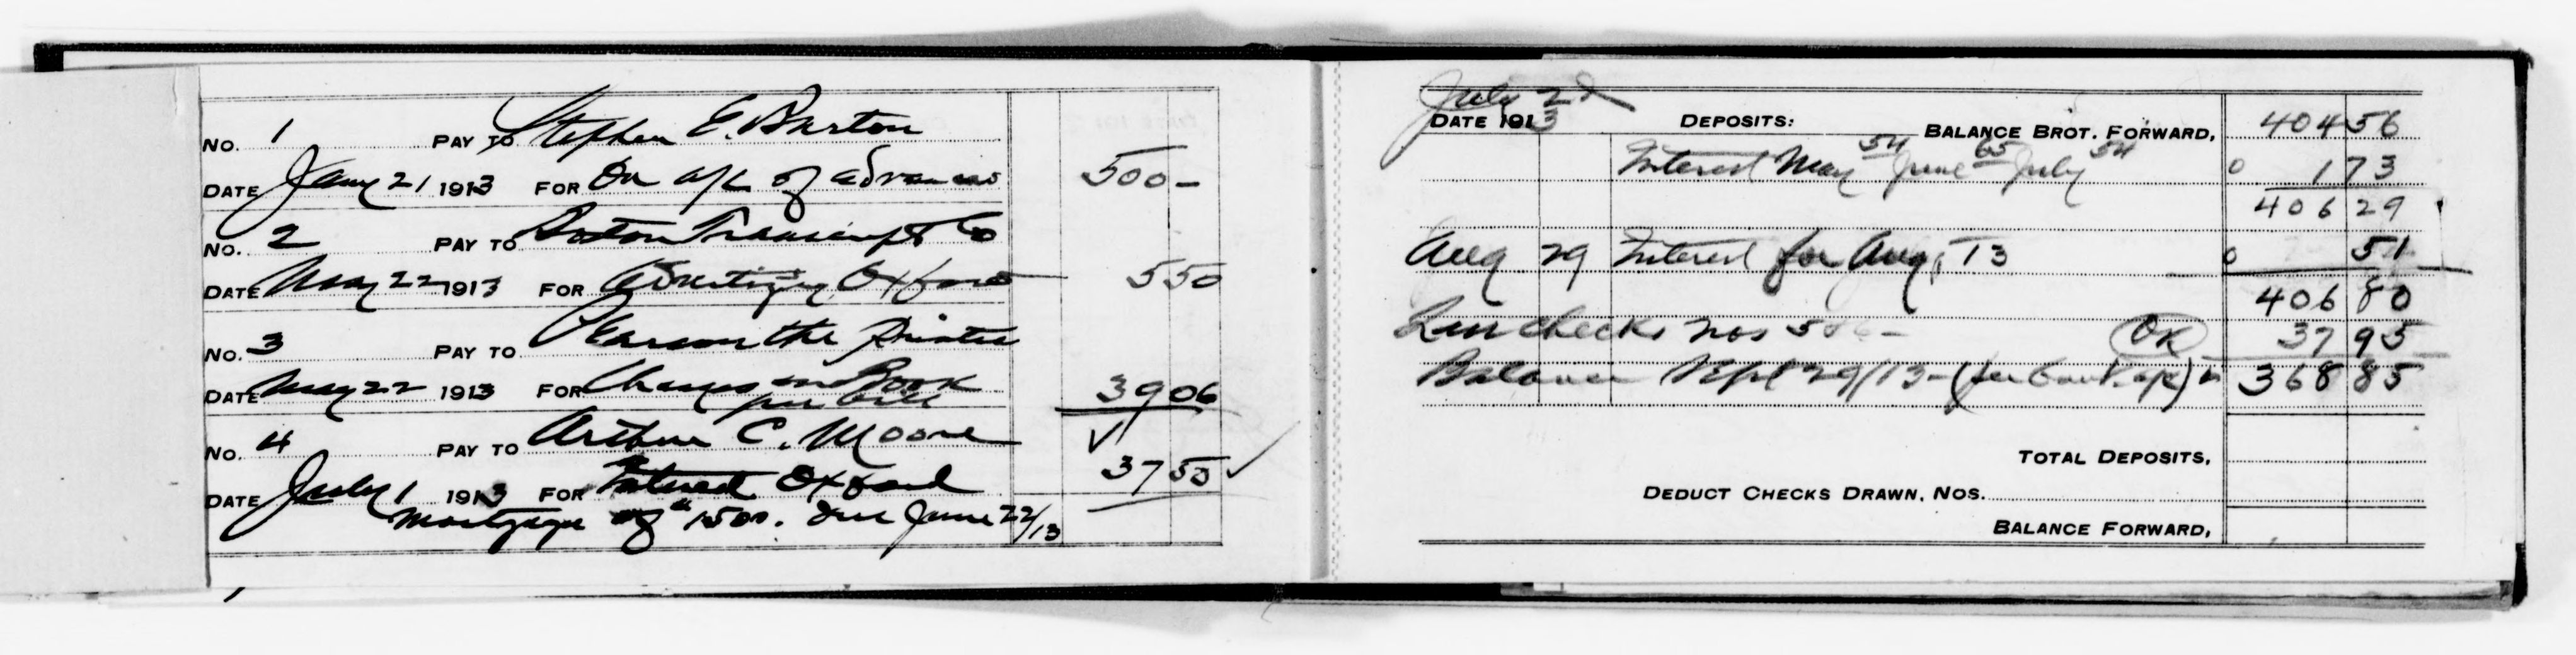 No. 1 PAY TO Stephen E. Barton
DATE Jany 21 1913 FOR On a/c of advances 500 –
No. 2 PAY TO Boston Transcript Co
DATE May 22 1913 FOR Advertizing Oxford 5 50
No. 3 PAY TO Pearson the Printer
DATE May 22 1913 FOR Charges on Book 39 06
per bill
No. 4 PAY TO Arthur C. Moore ✓
DATE July 1 1913 FOR Interest Oxford 37 50 ✓
mortgage of 1500. due June 22/13
July 2d
DATE 1913 DEPOSITS: BALANCE BROT. FORWARD, 404 56
Interest May 54 June 65 July 54 0 1 73
406 29
Aug 29 Interest for Aug, 13 0 51
406 80
Less checks nos 5 OK 37 95
Balance Sept 29/13 – (per bank a/c) 368 85
TOTAL DEPOSITS,
DEDUCT CHECKS DRAWN, NOS.
BALANCE FORWARD,